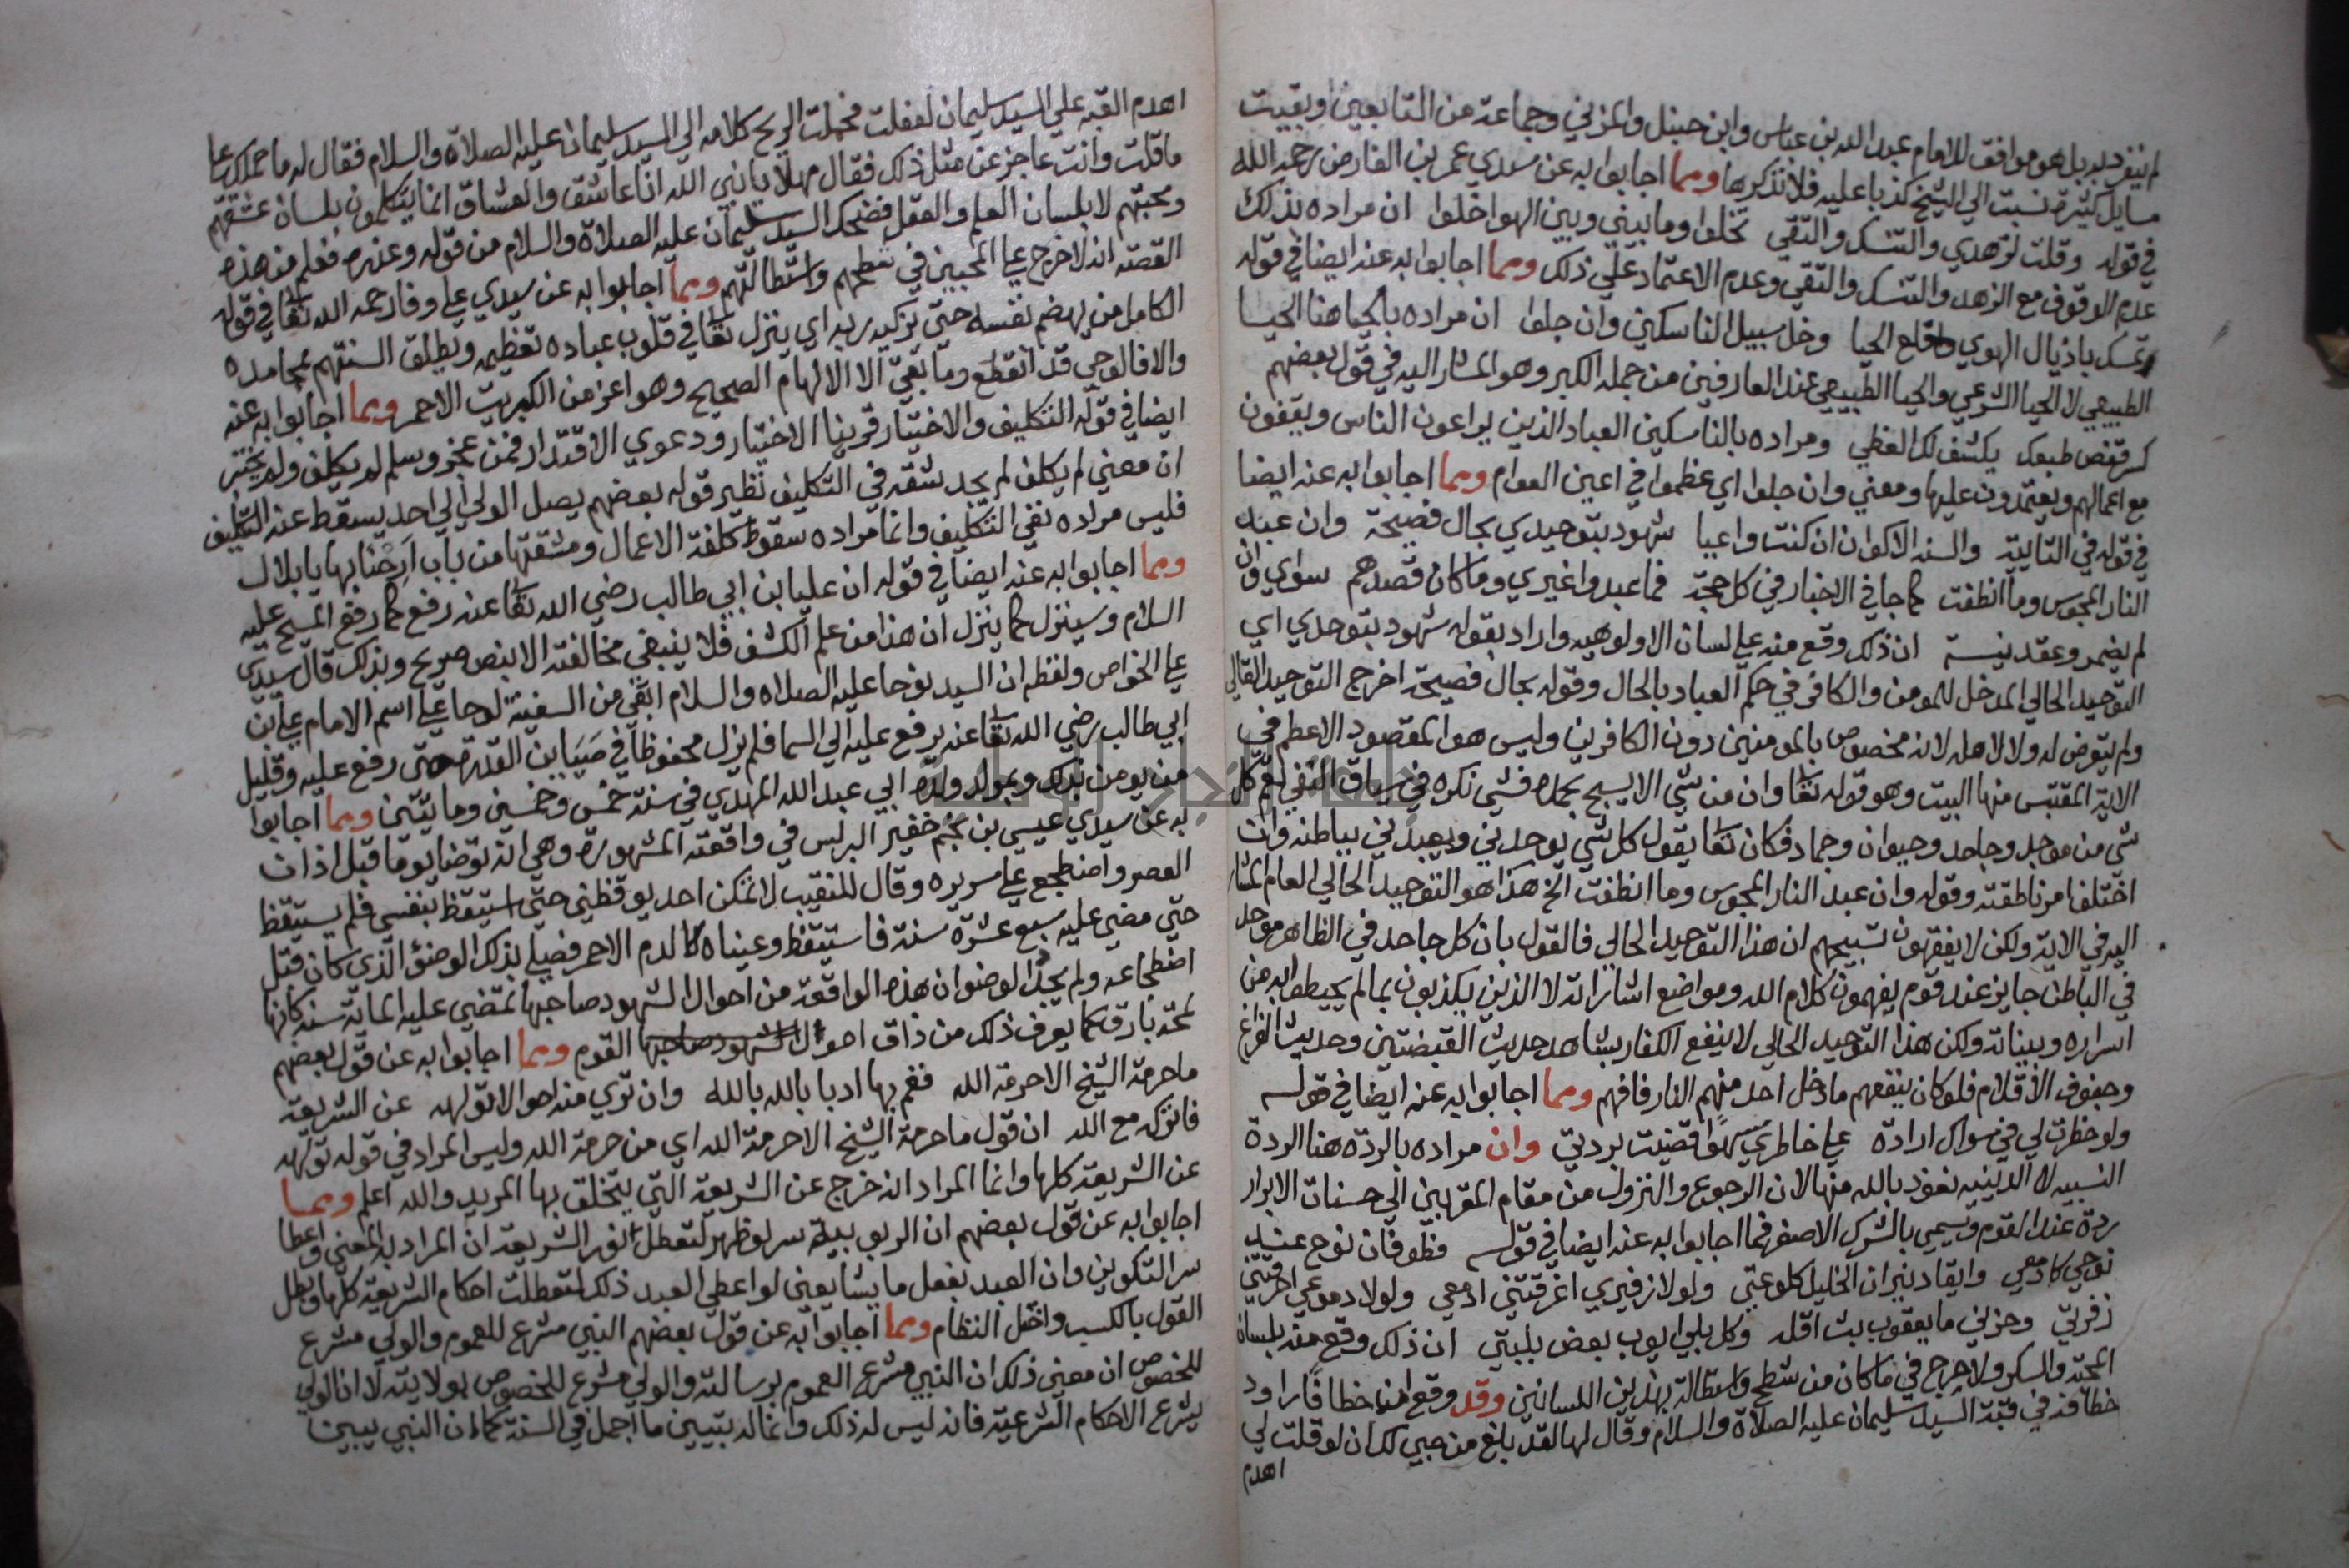 لم ينفرد به بل هو موافق للامام عبد الله بن عباس وابن حنبل والمزني وجماعة من التابعين وبقيت
مسايل كثيرة نسبت الي الشيخ كذبا عليه فلا نذكرها ومما اجابوا به عن سيدي عمر بن الفارض رحمه الله
في قوله وقلت لزهدي والتنسك والتقي تخلوا وما بيني وبين الهوا خلوا ان مراده بذلك
عدم الوقوف مع الزهد والتنسك والتقي وعدم الاعتماد علي ذلك ومما اجابوا به عنه ايضا في قوله
وتمسك باذيال الهوي واخلع الحيا وخل سبيل الناسكين وان جلوا ان مراده بالحيا هنا الحيا
الطبيعي لا الحيا الشرعي والحيا الطبيعي عند العارفين من جملة الكبر وهو المشار اليه في قول بعضهم
كسر قفص طبعك يكشف لك الغطي ومراده بالناسكين العباد الذين يراعون الناس ويقفون
مع اعمالهم ويعتمدون عليها ومعني وان جلوا اي عظموا في اعين العوام ومما اجابوا به عنه ايضا
في قوله في التايية والسنة الاكوان ان كنت واعيا شهود بتوحيدي بحال فصيحة وان عبد
النار المجوس وما انطفت كما جا في الاخبار في كل حجة فما عبدوا غيري وما كان قصدهم سواي وان
لم يضمر وعقد نيسة ان ذلك وقع منه علي لسان الاولوهيه واراد بقوله شهود بتوحدي اي
التوحيد الحالي المدخل للمومن والكافر في حكم العباد بالحال وقوله بحال فصيحة اخرج التوحيد القالي
ولم يتعرض له ولا لاهله لانه مخصوص بالمومنين دون الكافرين وليس هو المقصود الاعظم في
الاية المقتبس منها البيت وهو قوله تعا وان من شي الا يسبح بحمده فشي نكرة في سياق النفي تعم كل
شي من موحد وجاحد وحيوان وجماد فكان تعا يقول كل شي يوحدني ويعبدني بباطنه وان
اختلف امر ناطقته وقوله وان عبد النار المجوس وما انطفت الخ هذا هو التوحيد الحالي العام المشار
اليه في الاية ولكن لا يفقهون تسبيحهم ان هذا التوحيد الحالي فالقول بان كل جاحد في الظاهر موحد
في الباطن جايز عند قوم يفهمون كلام الله ومواضع اشاراته لا الذين يكذبون بما لم يحيطوا به من
اسراره وبيناته ولكن هذا التوحيد الحالي لا ينفع الكفار بشاهد حديث القبضتين وحديث الفراغ
وجفوف الاقلام فلو كان ينفعهم ما دخل احد منهم النار فافهم ومما اجابوا به عنه ايضا في قوله
ولو خطرت لي في سواك ارادة علي خاطري سهوا قضيت بردتي وان مراده بالردة هنا الردة
النسبيه لا الدينيه نعوذ بالله منها لان الرجوع والنزول من مقام المقربين الي حسنات الابرار
ردة عند القوم ويسمي بالشرك الاصغر فما اجابوا به عنه ايضا في قوله فطوفان نوح عند
نوحي كادمعي وايقاد نيران الخليل كلوعتي ولولا زفيري اغرقتني ادمعي ولولا دموعي احرقتني
زفرتي وحزني ما يعقوب بث اقله وكل بلي ايوب بعض بليتي ان ذلك وقع منه بلسان
المحبة والسكر ولا حرج في ما كان من شطح واستطالة بهذين اللسانين وقد وقع ان خطافا راود
خطافة في قبة السيد سليمان عليه الصلاة والسلام وقال لها لقد بلغ من حبي لك ان لو قلت لي
اهدم
اهدم القبه علي السيد سليمان لفعلت فحملت الريح كلامه الي السيد سليمان عليه الصلاة والسلام فقال له ما حملك علي
ما قلت وانت عاجز عن مثل ذلك فقال مهلا يا نبي الله انا عاشق والعشاق انما يتكلمون بلسان عشقهم
ومحبتهم لا بلسان العلم والعقل فضحك السيد سليمان عليه الصلاة والسلام من قوله وعذره فعلم من هذه
القصة انه لا حرج علي المحبين في شطحهم واستطالتهم ومما اجابوا به عن سيدي علي وفا رحمه الله تعا في قوله
الكامل من يهضم نفسه حتي يزكيه ربه اي ينزل تعا في قلوب عباده تعظيمه ويطلق السنتهم بمحامده
والا فالوحي قد انقطع وما بقي الا الالهام الصحيح وهو اعز من الكبريت الاحمر ومما اجابوا به عنه
ايضا في قوله التكليف والاختيار قرينا الاختيار ودعوي الاقتدار فمن عجز وسلم لم يكلف ولم يختبر
ان معني لم يكلف لم يجد مشقة في التكليف نظير قوله بعضهم يصل الولي الي احد يسقط عنه التكليف
فليس مراده نفي التكليف وانما مراده سقوط كلفة الاعمال ومشقتها من باب ارحنا بها يا بلال
ومما اجابوا به عنه ايضا في قوله ان عليا بن ابي طالب رضي الله تعا عنه رفع كما رفع المسيح عليه
السلام وسينزل كما ينزل ان هذا من علم الكشف فلا ينبغي مخالفته الا بنص صريح وبذلك قال سيدي
علي الخواص ولفظه ان السيد نوحا عليه الصلاة والسلام ابقي من السفينة لوحا علي اسم الامام علي ابن
ابي طالب رضي الله تعا عنه يرفع عليه الي السما فلم يزل محفوظا في القدرة حتي رفع عليه وقليل
من يومن بذلك وبمولد ولده ابي عبد الله المهدي في سنة خمس وخمسين وما يتين ومما اجابوا
به عن سيدي عيسي بن نجم خفير البرلس في واقعته المشهورة وهي انه توضا يوما قبل اذان
العصر واضطجع علي سريره وقال للنقيب لا تمكن احد يوقظني حتي استيقظ بنفسي فلم يستيقظ
حتي مضي عليه سبع عشرة سنة فاستيقظ وعيناه كالدم الاحمر فصلي بذلك الوضو الذي كان قبل
اضطجاعه ولم يجدد الوضو ان هذه الواقعة من احوال الشهود صاحبها تمضي عليه الماية سنه كانها
لمحة بارق كما يعرف ذلك من ذاق احوال القوم ومما اجابوا به عن قول بعضهم
ما حرمة الشيخ الا حرمة الله فقم بها ادبا بالله بالله وان تري منه احوالا تولهه عن الشريعة
فاتركه مع الله ان قول ما حرمة الشيخ الا حرمة الله اي من حرمة الله وليس المراد في قوله تولهه
عن الشريعة كلها وانما المراد انه خرج عن الشريعة التي يتخلق بها المريد والله اعلم ومما
اجابوا به عن قول بعضهم ان الربوبية سر لو ظهر لتعطل نور الشريعة ان المراد به المعني واعطا
سر التكوين وان العبد يفعل ما يشا يعني لو اعطي العبد ذلك لتعطلت احكام الشريعة كلها وبطل
القول بالكسب واختل النظام ومما اجابوا به عن قول بعضهم النبي مشرع للعموم والولي مشرع
للخصوص ان معني ذلك ان النبي مشرع العموم برسالته والولي مشرع للخصوص بولايته لا ان الولي
يشرع الاحكام الشرعية فانه ليس له ذلك وانما له تبيين ما اجمل في السنة كما ان النبي يبين